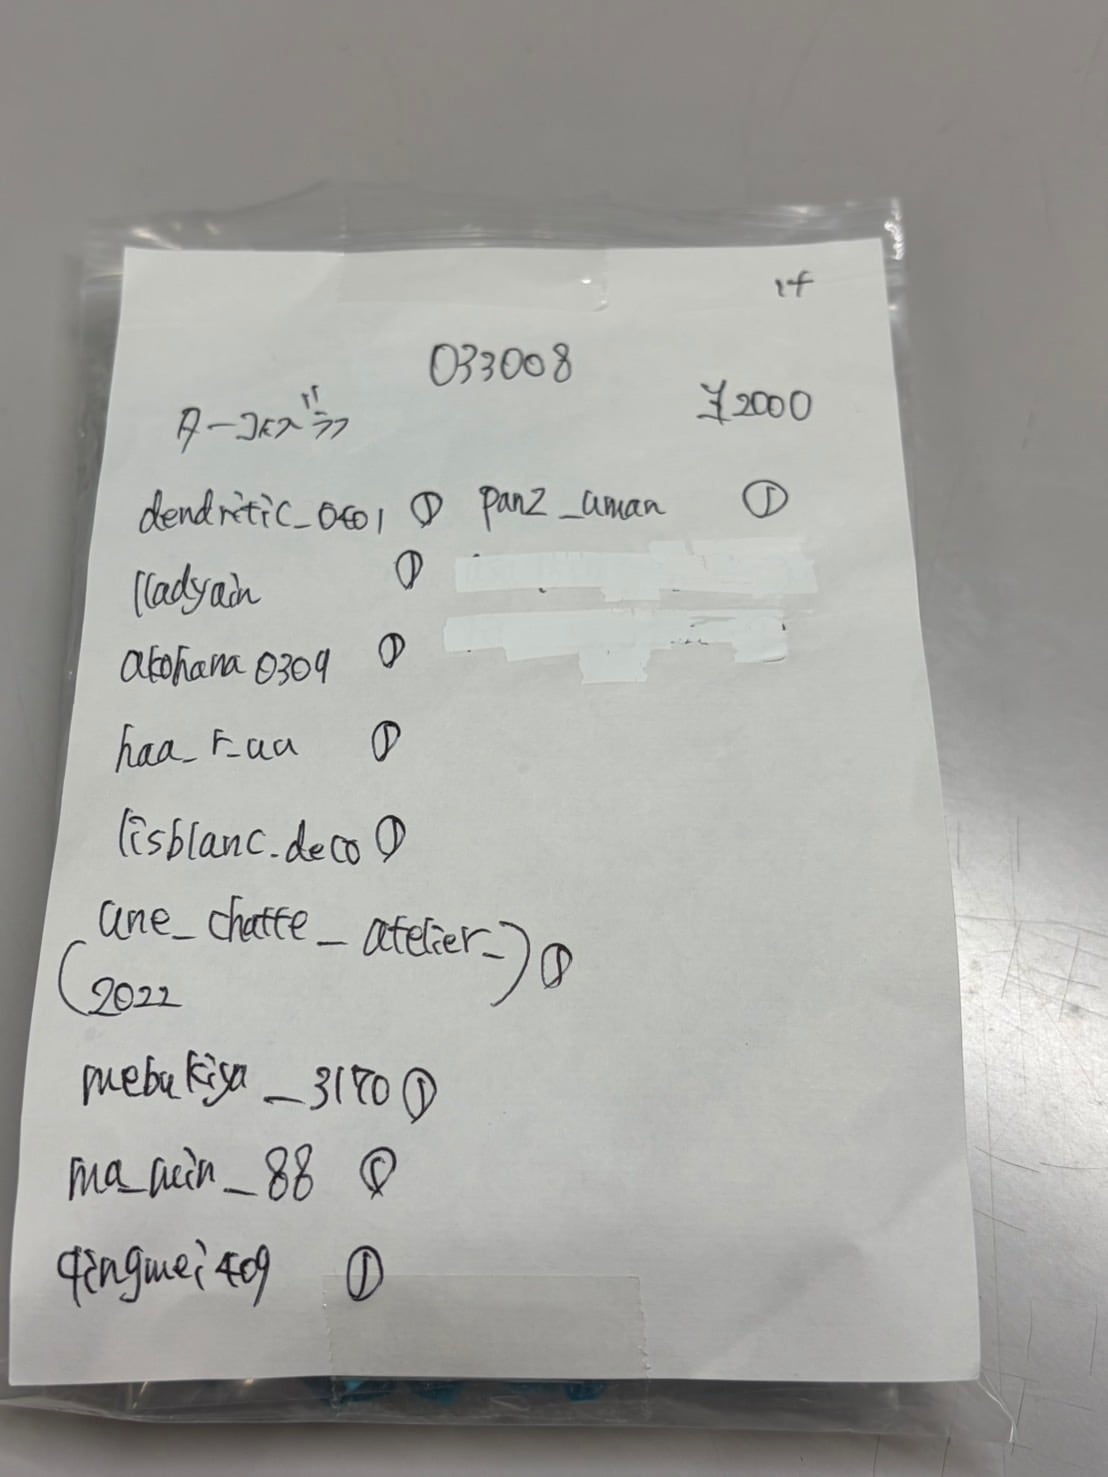 14
033008
¥2000
dendritic_0401 ① panz_uman ①
lladyain ①
akohana0309 ①
haa_r_aa ①
lisblanc.deco ①
une_chatte_atelier_
(2022) ①
mebukiya_3170 ①
ma_min_88 ①
qingmei409 ①